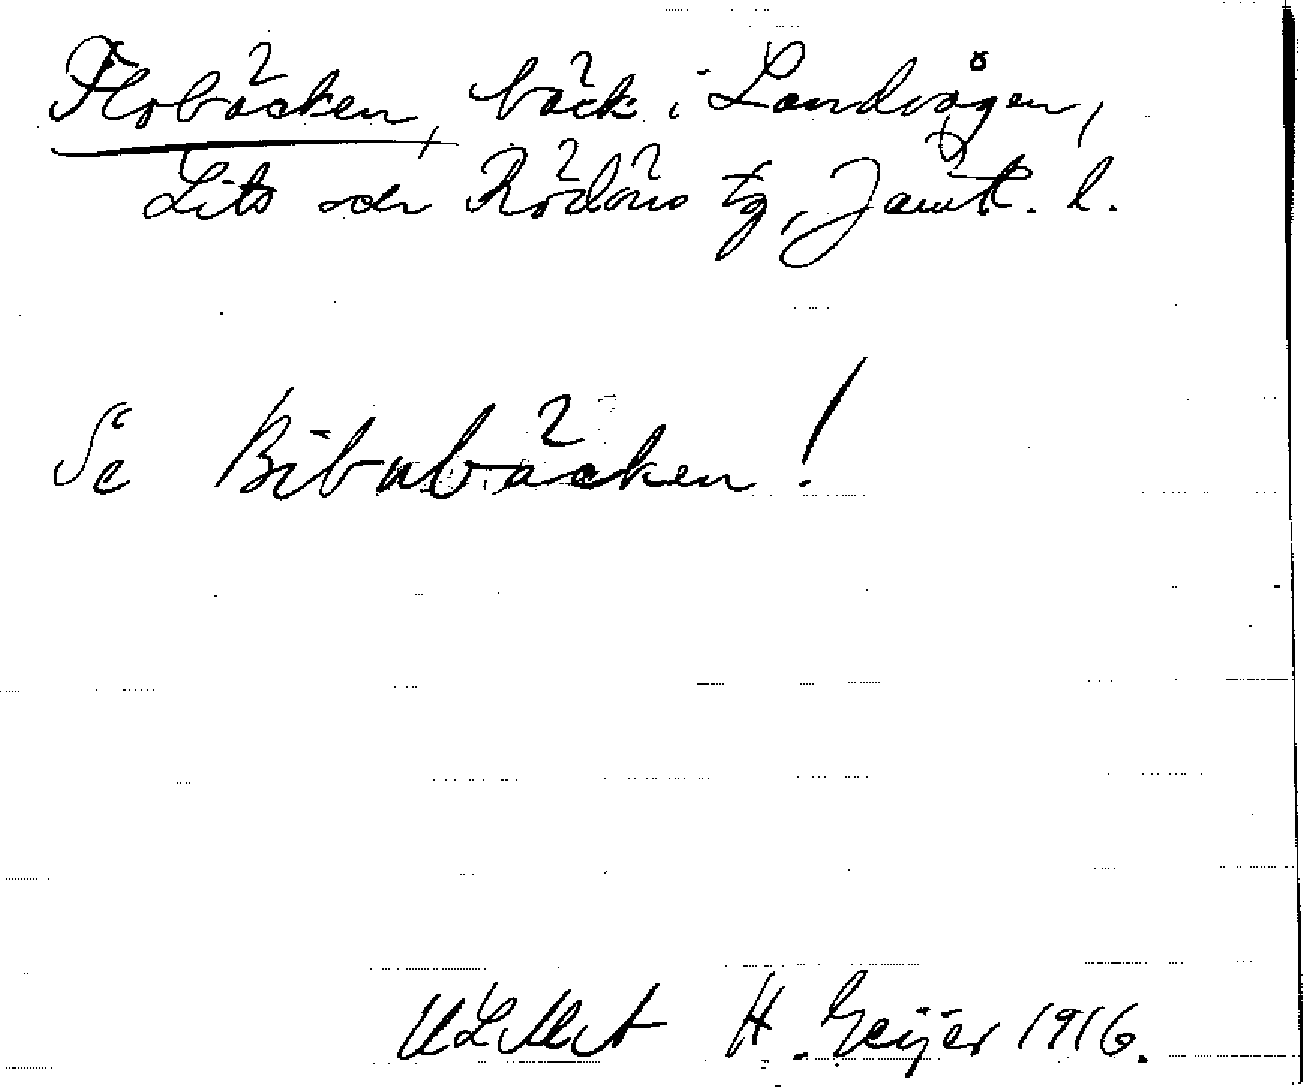 Flobäcken, bäck i Landvågen,
Lits och Rödöns tg, Jämt. l.
Se Bibäcken!
H. Geijer 1916.